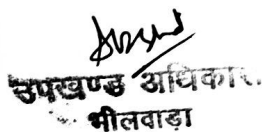 उपखण्ड अधिकार
भीलवाडा